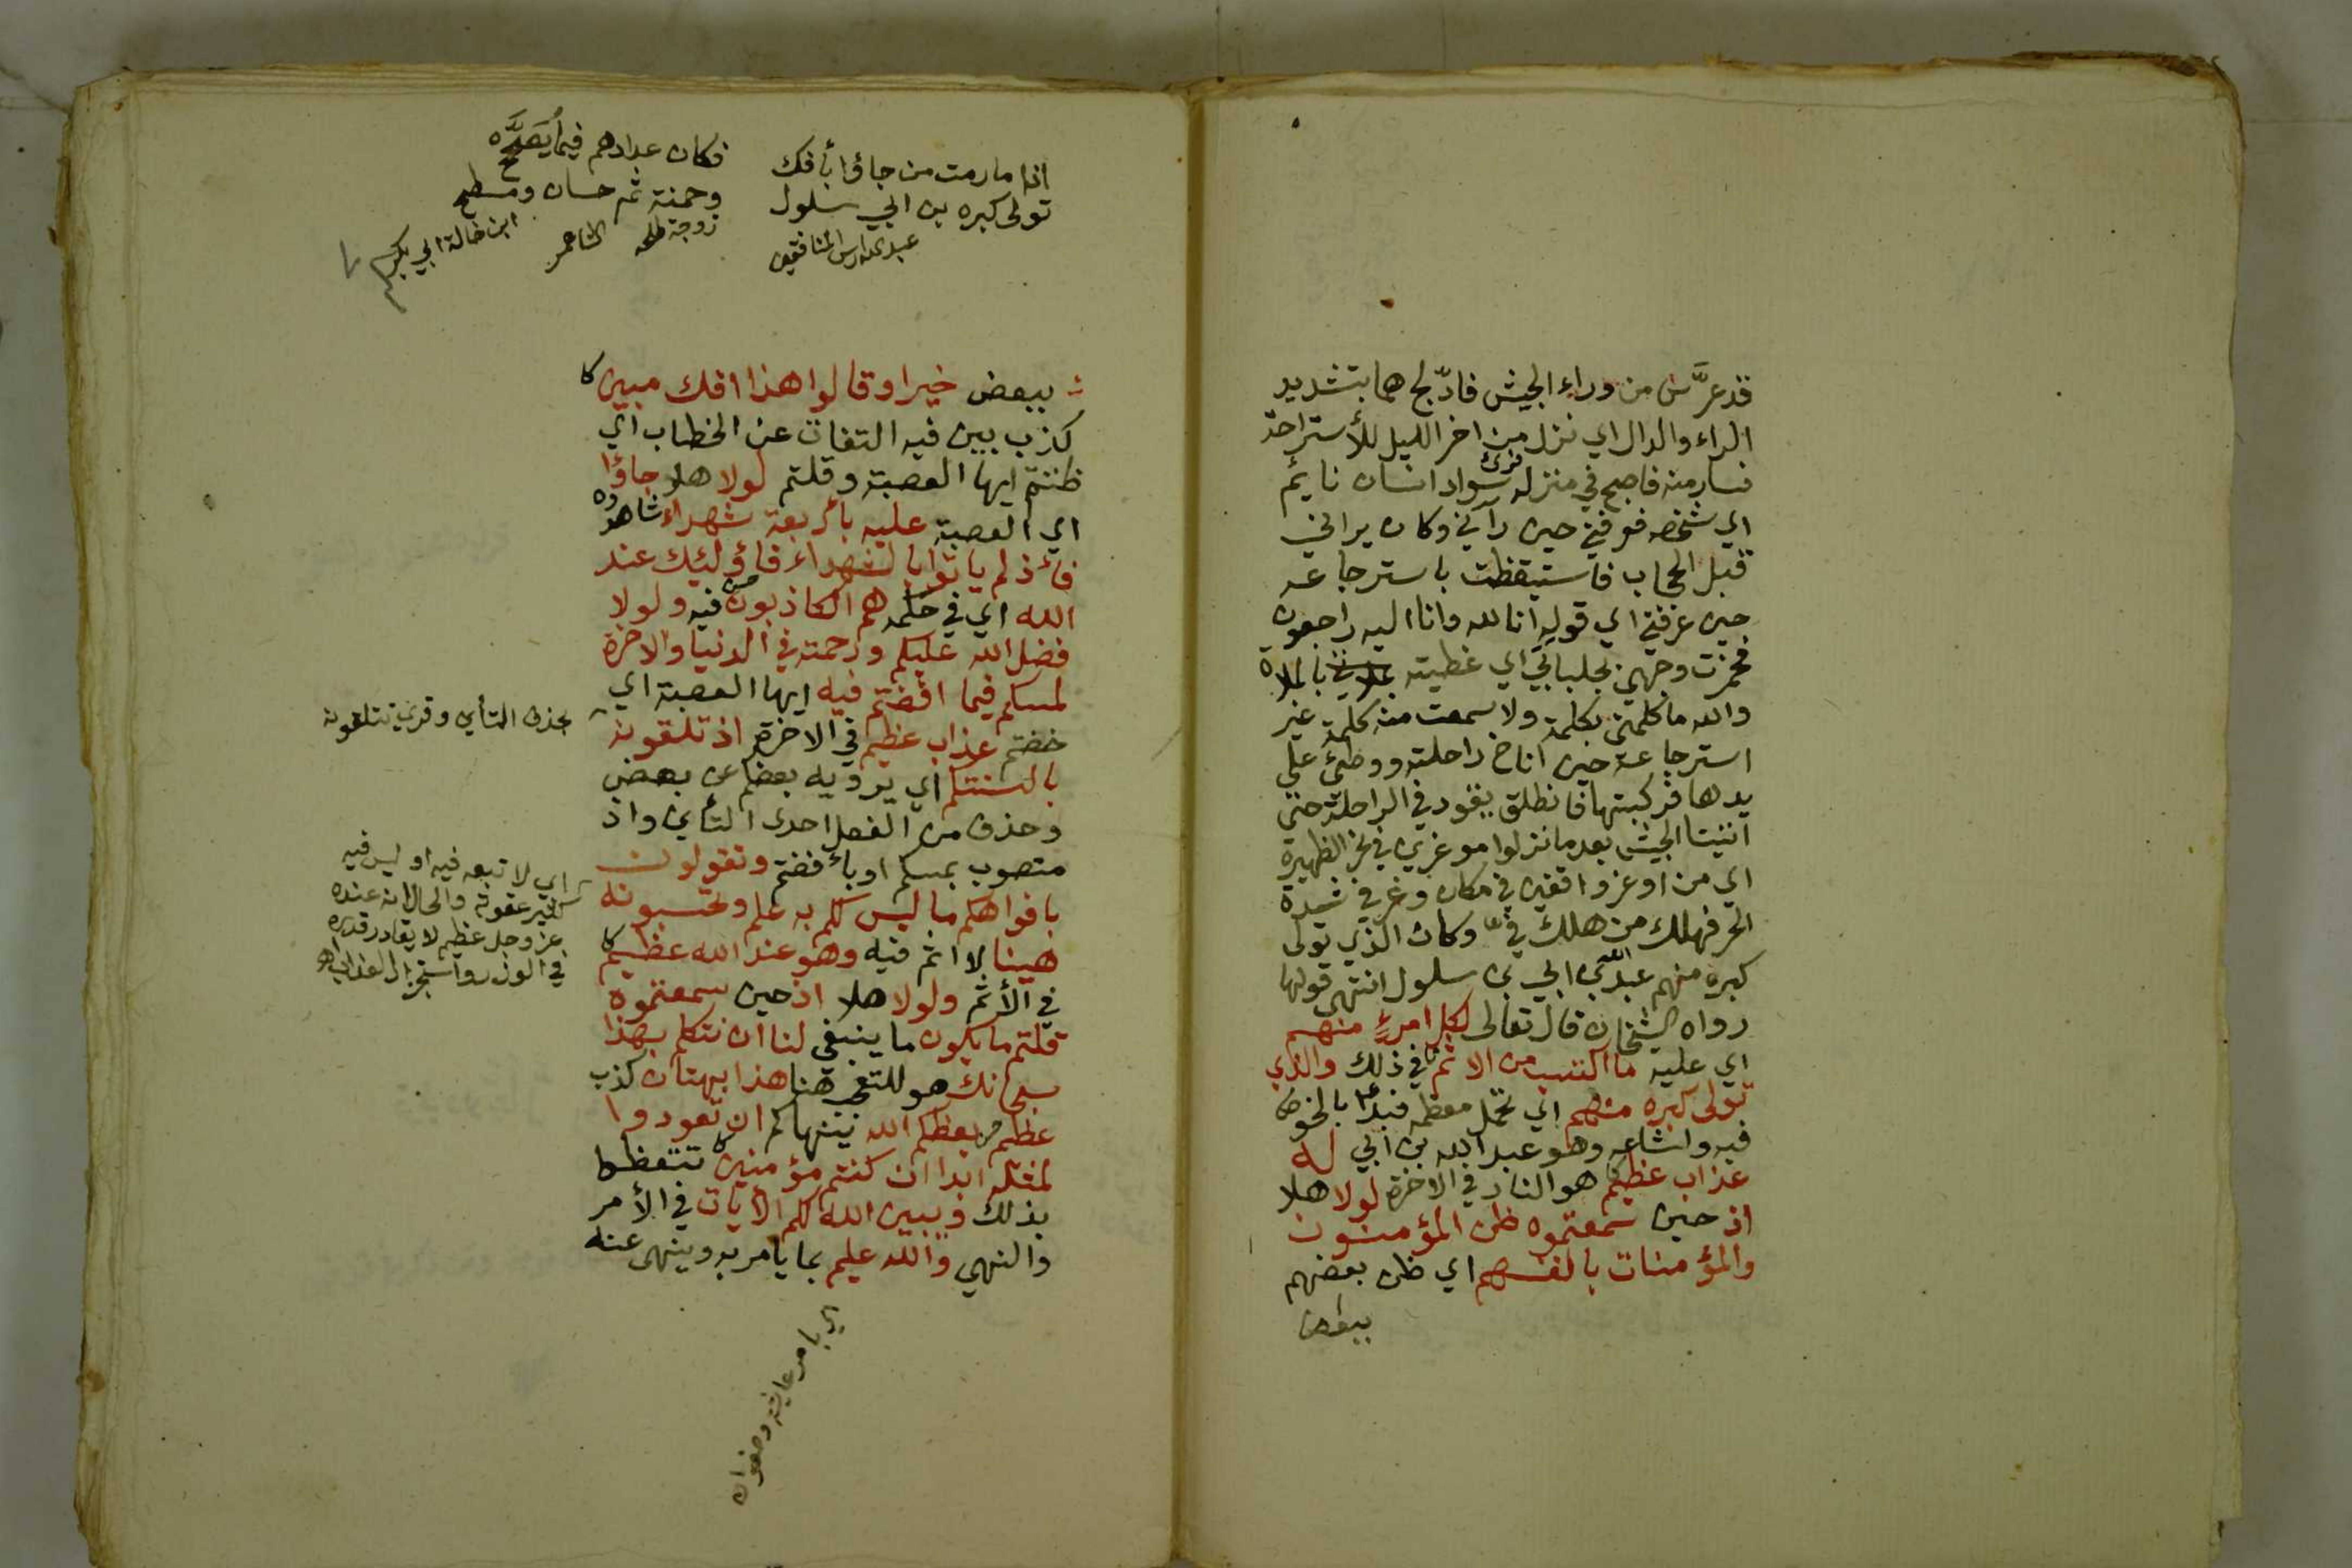 قد عرَّس من وراء الجيش فادّلج هما بتشديد
الراء والدال اي نزل من اخر الليل للأستراحة
فسار منه فاصبح في منزله فرئ سواد انسان نايم
اي شخصه فعرفني حين رآني وكان يراني
قبل الحجاب فاستيقظت باسترجاعه
حين عرفني اي قوله انا لله وانا اليه راجعون
فخمرت وجهي بجلبابي اي غطيته بالملاة
والله ما كلمني بكلمة ولا سمعت منه كلمة غير
استرجاعه حين اناخ راحلته ووطئ على
يدها فركبتها فانطلق يقود في الراحلة حتى
اتيتا الجيش بعد ما نزلوا موغرين في نحر الظهيرة
اي من اوغر واقفين في مكان وغر في شدة
الحر فهلك من هلك في وكان الذي تولى
كبره منهم عبد الله بن ابي بن سلول انتهى قولها
رواه الشيخان قال تعالى لكل امرءٍ منهم
اي عليه ما اكتسب من الاثم في ذلك والذي
تولى كبره منهم اي تحمل معظمه فبدأ بالخوض
فيه واشاعه وهو عبد الله بن ابي له
عذاب عظيم هو النار في الاخرة لولا هلا
اذ حين سمعتموه ظن المؤمنون
والمؤمنات بانفسهم اي ظن بعضهم
ببعض
اذا ما رمت من جاؤا بأفك
تولى كبره بن ابي سلول
عبد الله راس المنافقين
فكان عدادهم فيما
وحمنة ثم حسان ومسطح
زوجة طلحه الشاعر ابن خالة ابي بكر
ببعض خيرا وقالوا هذا افك مبين
كذب بين فيه التفات عن الخطاب اي
ظننتم ايها العصبة وقلتم لولا هلا جاؤا
اي العصبة عليه بأربعة شهداء شاهدوه
فأذ لم ياتوا بالشهداء فاؤلئك عند
الله اي في حكمه هم الكاذبون فيه ولولا
فضل الله عليكم ورحمته في الدنيا والاخرة
لمسكم فيما افضتم فيه ايها العصبة اي
خضتم عذاب عظيم في الاخرة اذ تلقونه
بالسنتكم اي يرويه بعضكم عن بعض
وحذف من الفعل احدى التأين واذ
منصوب بمسكم او بأفضتم وتقولون
بافواهكم ما ليس لكم به علم وتحسبونه
هينا لا اثم فيه وهو عند الله عظيم
في الأثم ولولا هلا اذ حين سمعتموه
قلتم ما يكون ما ينبغي لنا ان نتكلم بهذا
سبحانك هو للتعجب هنا هذا بهتان كذب
عظيم يعظكم الله ينهاكم ان تعودوا
لمثله ابدا ان كنتم مؤمنين تتعظوا
بذلك ويبين الله لكم الأيات في الأمر
والنهي والله عليم بما يامر به وينهى عنه
بحذف التأين وقرئ تتلقونه
اي لا تبعه فيه او ليس فيه
كثير عقوبة والحال انه عنده
عز وجل عظيم لا يقادر قدره
في الوزر واستجرار العذاب
اي بامر عايشه وصفوان